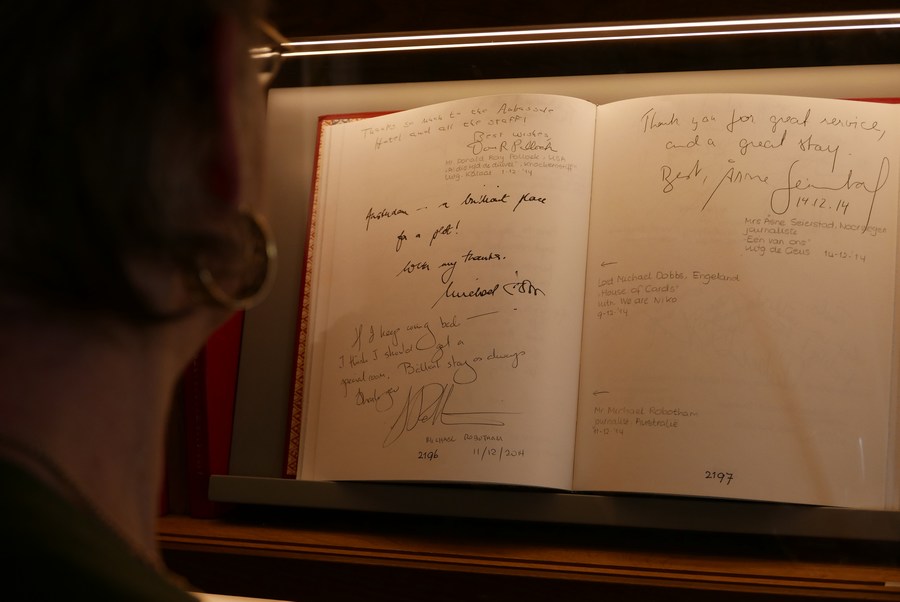 Thanks so much to the Ambassade
Hotel and all the staff!
Best wishes
Don R. Pollock
Mr Donald Ray Pollock, USA
7-12-'14
Amsterdam -- a brilliant place
for a plot!
With my thanks.
Michael
If I keep coming back
I think I should get a
special room. Brilliant stay as always
MICHAEL ROBOTHAM
2196 11/12/2014
Thank you for great service,
and a great stay.
Best, Åsne Seierstad
14.12.14
Mrs Åsne Seierstad, Noorwegen
journaliste
'Een van ons'
Uitg de Geus 14-12-'14
←
Lord Michael Dobbs, Engeland
'House of Cards'
-12-'14
←
Mr Michael Robotham
Australië
-12-'14
2197